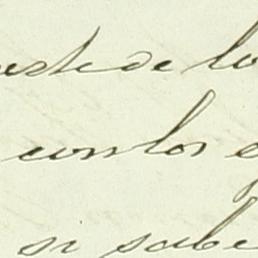 este de lo
con los
si sabe